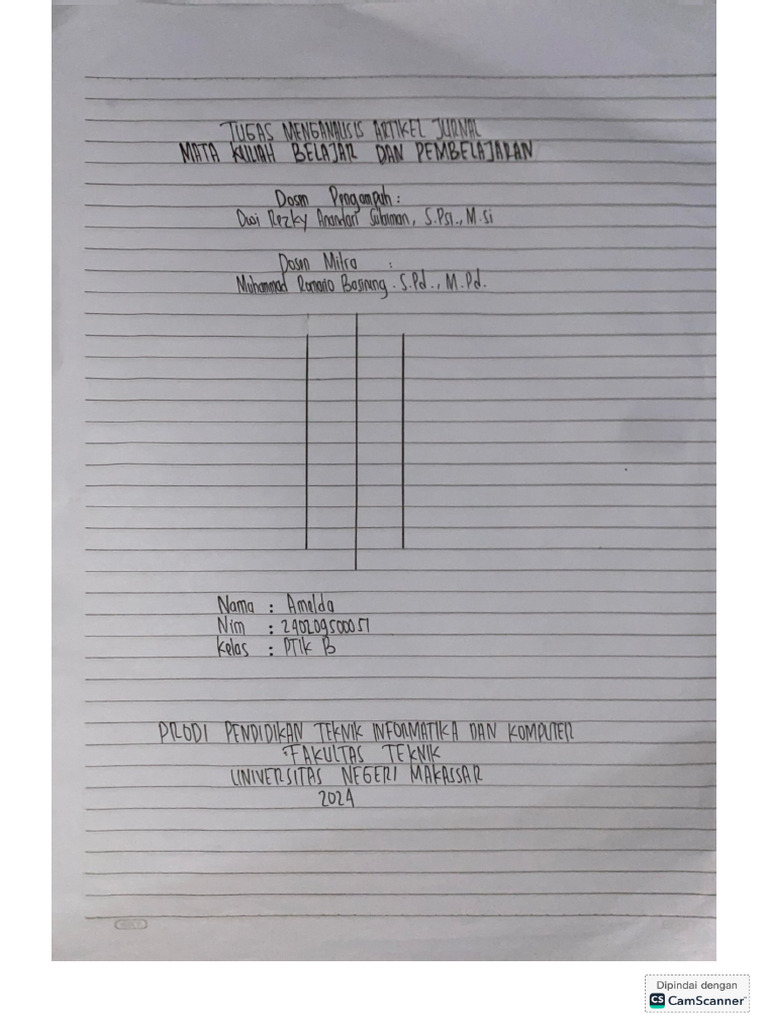 TUGAS MENGANALISIS ARTIKEL JURNAL
MATA KULIAH BELAJAR DAN PEMBELAJARAN
Dosen Pengampuh :
Dwi Rezky Anandari Sulaiman, S.Psi., M.Si
Dosen Mitra :
Muhammad Romario Basirung. S.Pd., M.Pd.
Nama : Amelda
Nim : 240209500051
Kelas : PTIK B
PRODI PENDIDIKAN TEKNIK INFORMATIKA DAN KOMPUTER
FAKULTAS TEKNIK
UNIVERSITAS NEGERI MAKASSAR
2024
Dipindai dengan
CS CamScanner